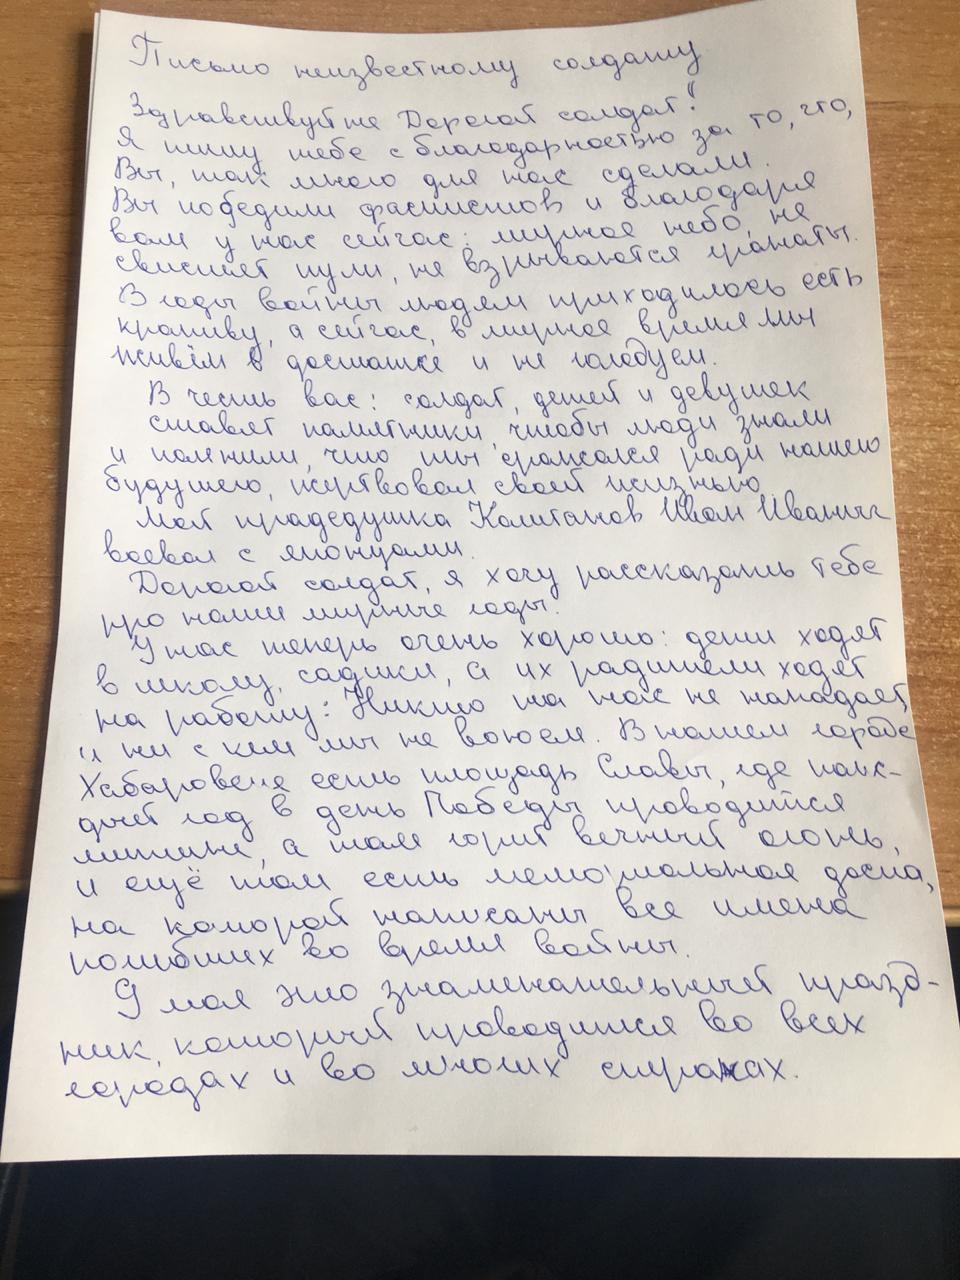 Письмо неизвестному солдату
Здравствуйте Дорогой солдат!
Я пишу тебе с благодарностью за то, что,
Вы, так много для нас сделали.
Вы победили фашистов и благодаря
вам у нас сейчас: мирное небо, не
свистят пули, не взрываются гранаты.
В годы войны людям приходилось есть
крапиву, а сейчас, в мирное время мы
живём в достатке и не голодуем.
В честь вас: солдат, детей и девушек
ставят памятники, чтобы люди знали
и помнили, что ты сражался ради нашего
будушего, жертвовал своей жизнью
Мой прадедушка Иван Иваныч
воевал с японцами.
Дорогой солдат, я хочу рассказать тебе
про наши мирные годы.
У нас теперь очень хорошо: дети ходят
в школу, садики, а их радители ходят
на работу: Никто на нас не нападает,
и ни с кем мы не воюем. В нашем городе
Хабаровске есть площадь Славы, где каж-
дый год в день Победы проводится
митинг, а там горит вечный огонь,
и ещё там есть мемориальная доска,
на которой написаны все имена
погибших во время войны.
9 мая это знаменательный празд-
ник, который проводится во всех
городах и во многих странах.